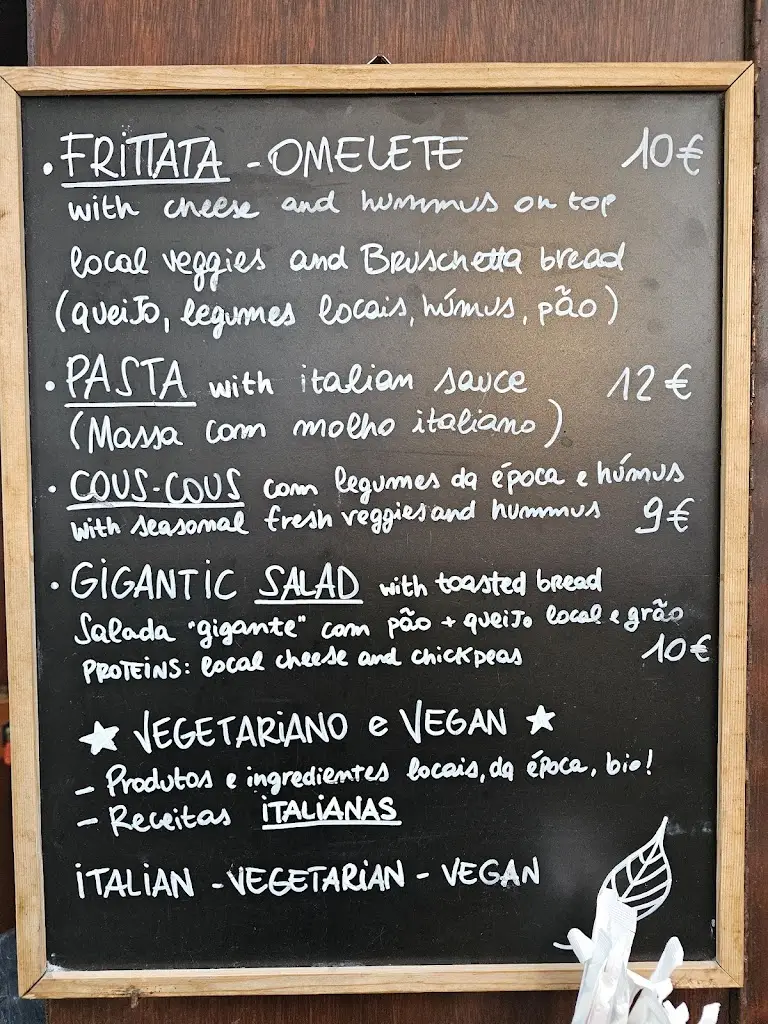 • FRITTATA - OMELETE 10€
with cheese and hummus on top
local veggies and Bruschetta bread
(queijo, legumes locais, húmus, pão)
• PASTA with italian sauce 12€
(Massa com molho italiano)
• COUS-COUS com legumes da época e húmus
with seasonal fresh veggies and hummus 9€
• GIGANTIC SALAD with toasted bread
Salada "gigante" com pão + queijo local e grão
PROTEINS: local cheese and chickpeas 10€
★ VEGETARIANO e VEGAN ★
- Produtos e ingredientes locais, da época, bio!
- Receitas ITALIANAS
ITALIAN - VEGETARIAN - VEGAN